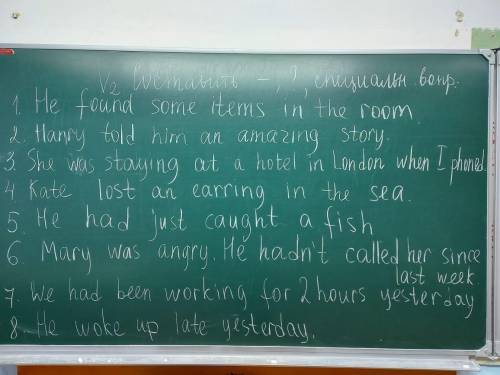 V2 составить -, ?, специальн. вопр.
1. He found some items in the room.
2. Hanry told him an amazing story.
3. She was staying at a hotel in London when I phoned
4 Kate lost an earring in the sea.
5. He had just caught a fish
6. Mary was angry. He hadn't called her since
last week
7. We had been working for 2 hours yesterday
8. He woke up late yesterday.